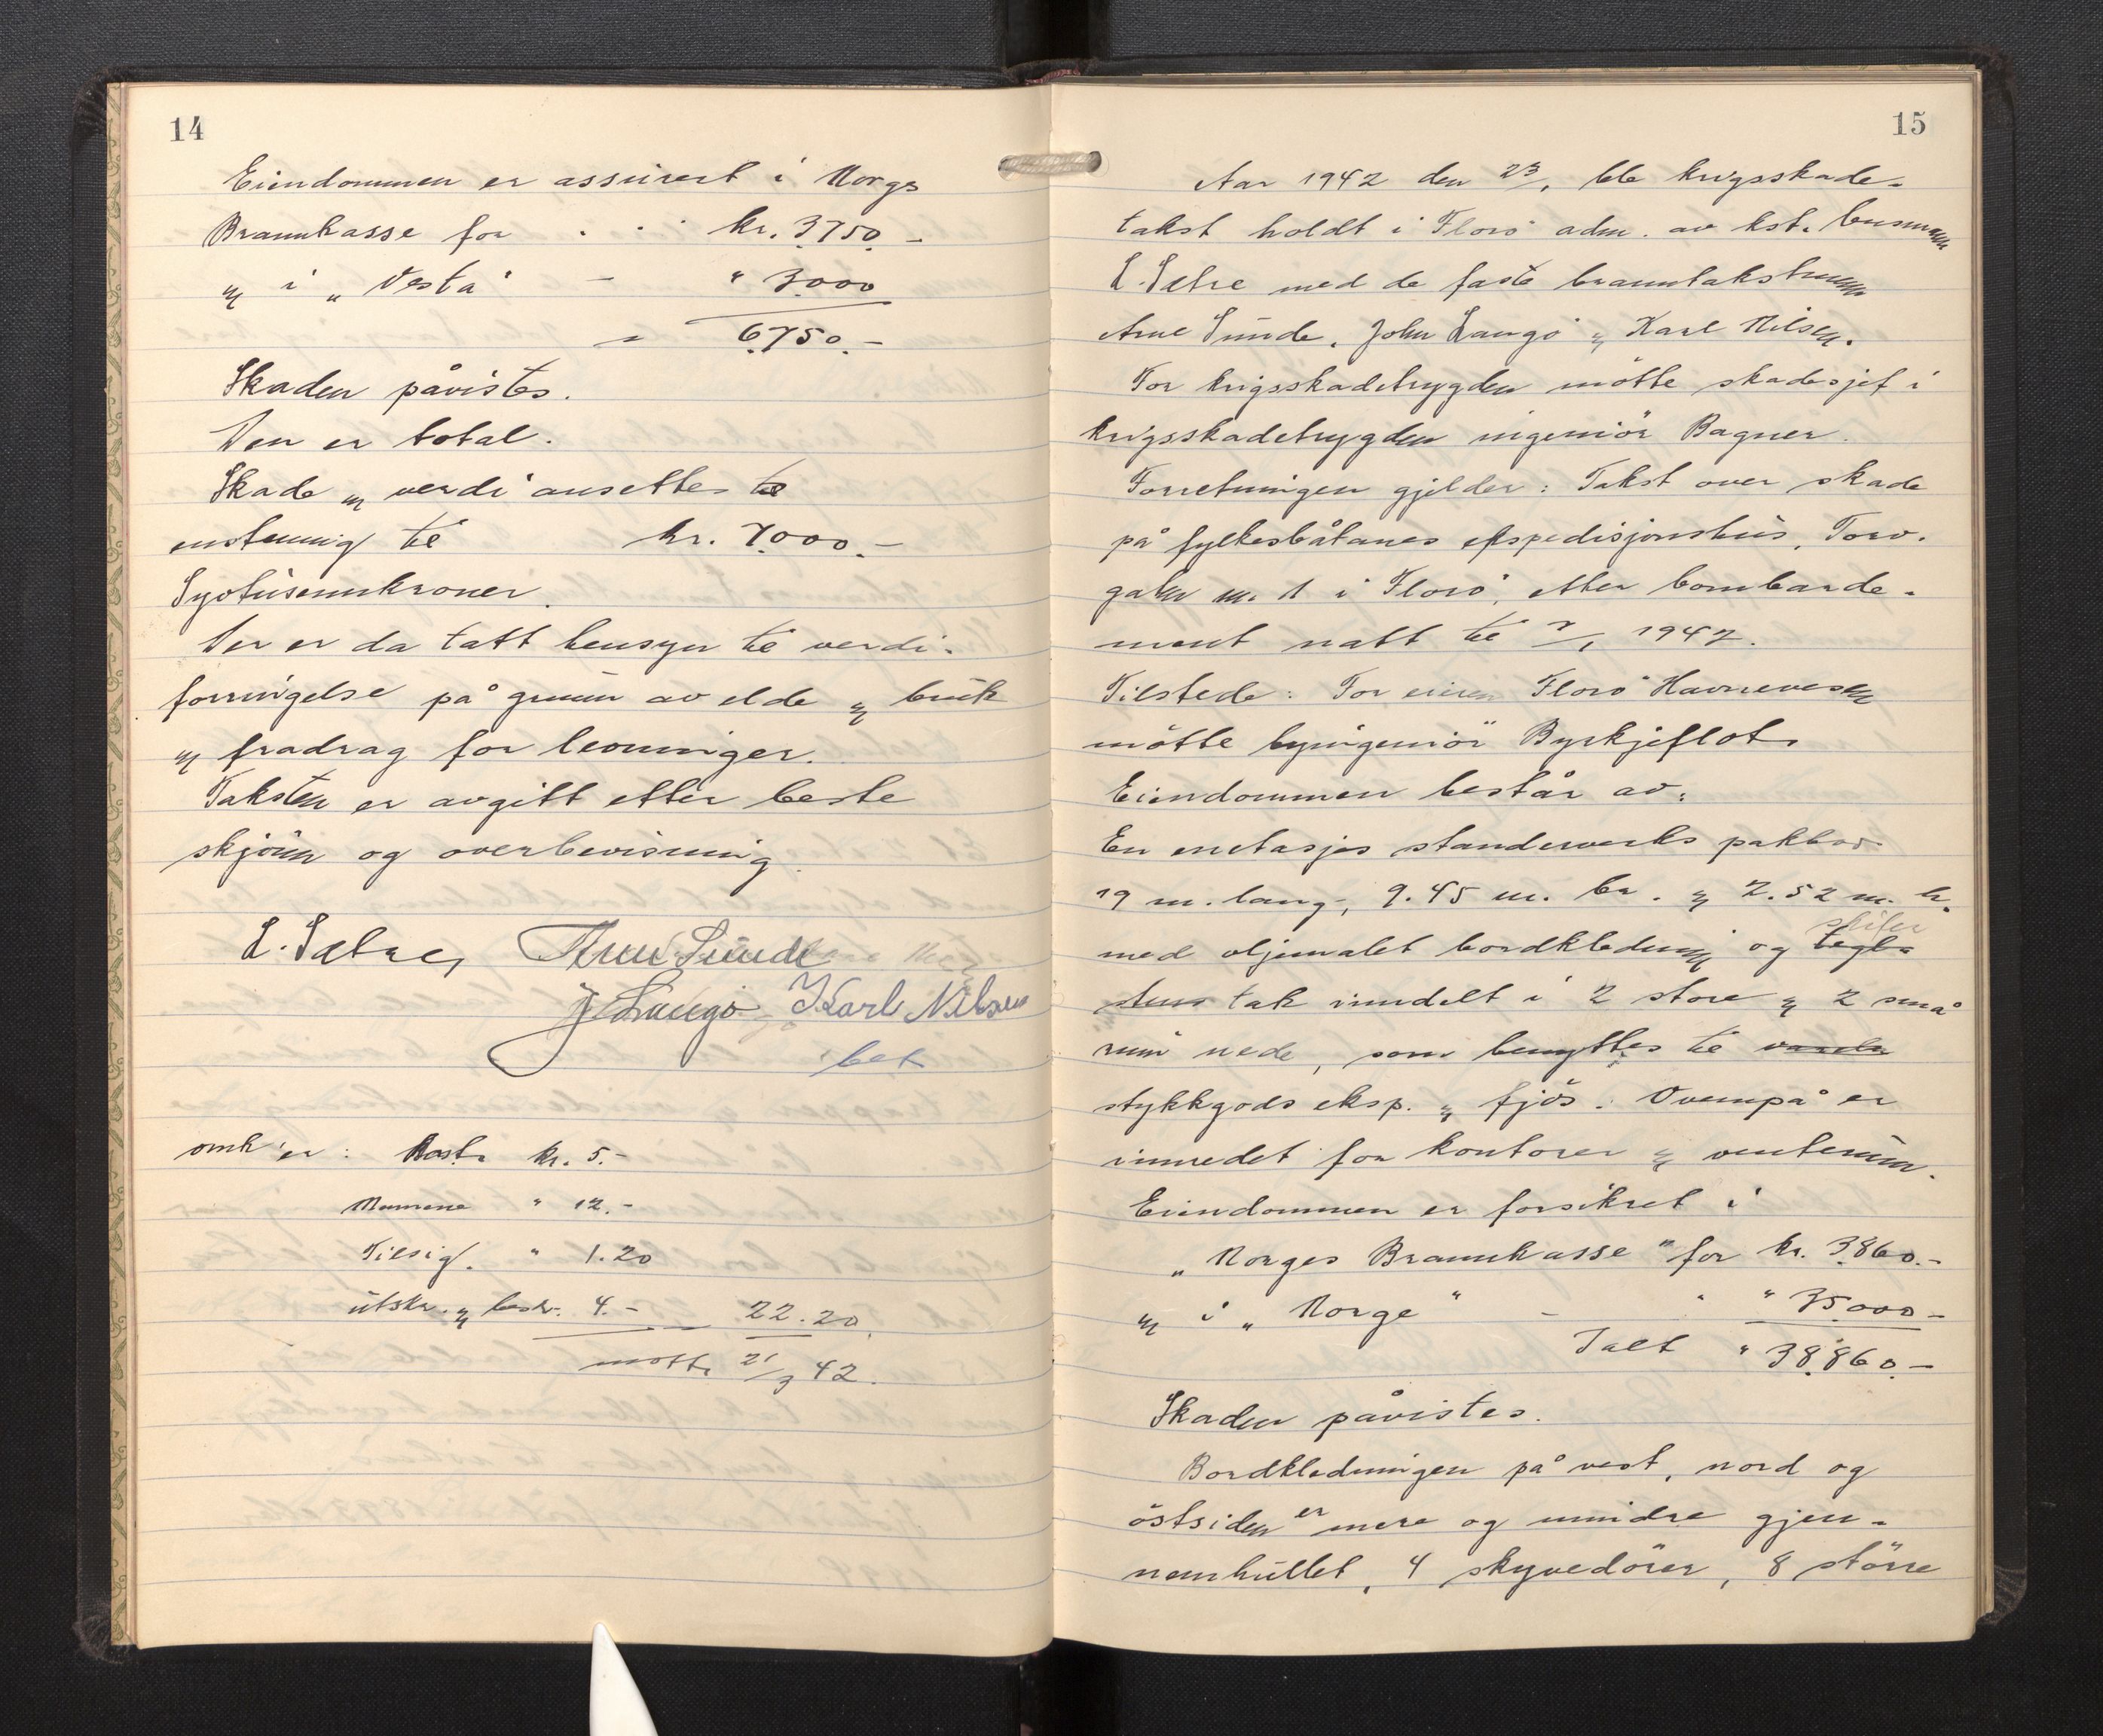 14
Eiendommen er assurert i Norges
Brannkasse for . . . kr. 3750.-
og i "Vesta" - " 3000
= 6750.-
Skaden påvistes.
Den er total.
Skade og verdi ansettes til
enstemmig til kr. 7000.-
Syvtusenkroner.
Der er da tatt hensyn til verdi-
forringelse på grunn av elde og bruk
og fradrag for levninger.
Taksten er avgitt etter beste
skjönn og overbevisning.
L. Sætre, Arne Sunde
J Langö Karl Nilsen
bet
omk'er: kr. 5.-
Mennene " 12.-
Tilsig. " 1.20
utskr. og 4.- 22.20
mott. 21/3 42.
15
Aar 1942 den 23/1 ble krigsskade-
takst holdt i Florö adm. av kst. busmann
L. Sætre med de faste branntakstmenn
Arne Sunde, John Langö og Karl Nilsen.
For krigsskadetrygden mötte skadesjef i
krigsskadetrygden ingeniör Bagner.
Forretningen gjelder: Takst over skade
på fylkesbåtanes ekspedisjonshus, Torv.
gaten nr. 1 i Florö, etter bombarde-
ment natt til 1942.
Tilstede: For eieren Florö Havnevesen
mötte byingeniör Byrkjeflot.
Eiendommen består av:
En enetasjes standerverks pakkbod
19 m. lang, 9.45 m. br. og 2.52 m. h.
skifer
med oljemalet bordkledning og tegl-
stens tak inndelt i 2 store og 2 små
rum nede, som benyttes til
stykkgods eksp. og fjös. Ovenpå er
innredet for kontorer og venterum.
Eiendommen er forsikret i
"Norges Brannkasse" for kr. 3860.-
og i "Norge" - " " 35000-
Ialt " 38.860.-
Skaden påvistes.
Bordkledningen på vest, nord og
östsiden er mere og mindre gjen-
nemhullet, 4 skyvedörer, 8 större